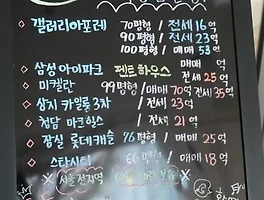 갤러리아포레 70평형 / 전세 16억
90평형 / 전세 23억
100평형 / 매매 53억
삼성 아이파크 펜트하우스 매매 억
전세 25억
미켈란 99평형 / 매매 70억 전세 35억
상지 카일룸 3차 / 전세 23억
청담 마크힐스 / 전세 21억
잠실 롯데캐슬 76평형 / 매매 25억
스타시티 66평형 / 매매 18억
서울 전지역